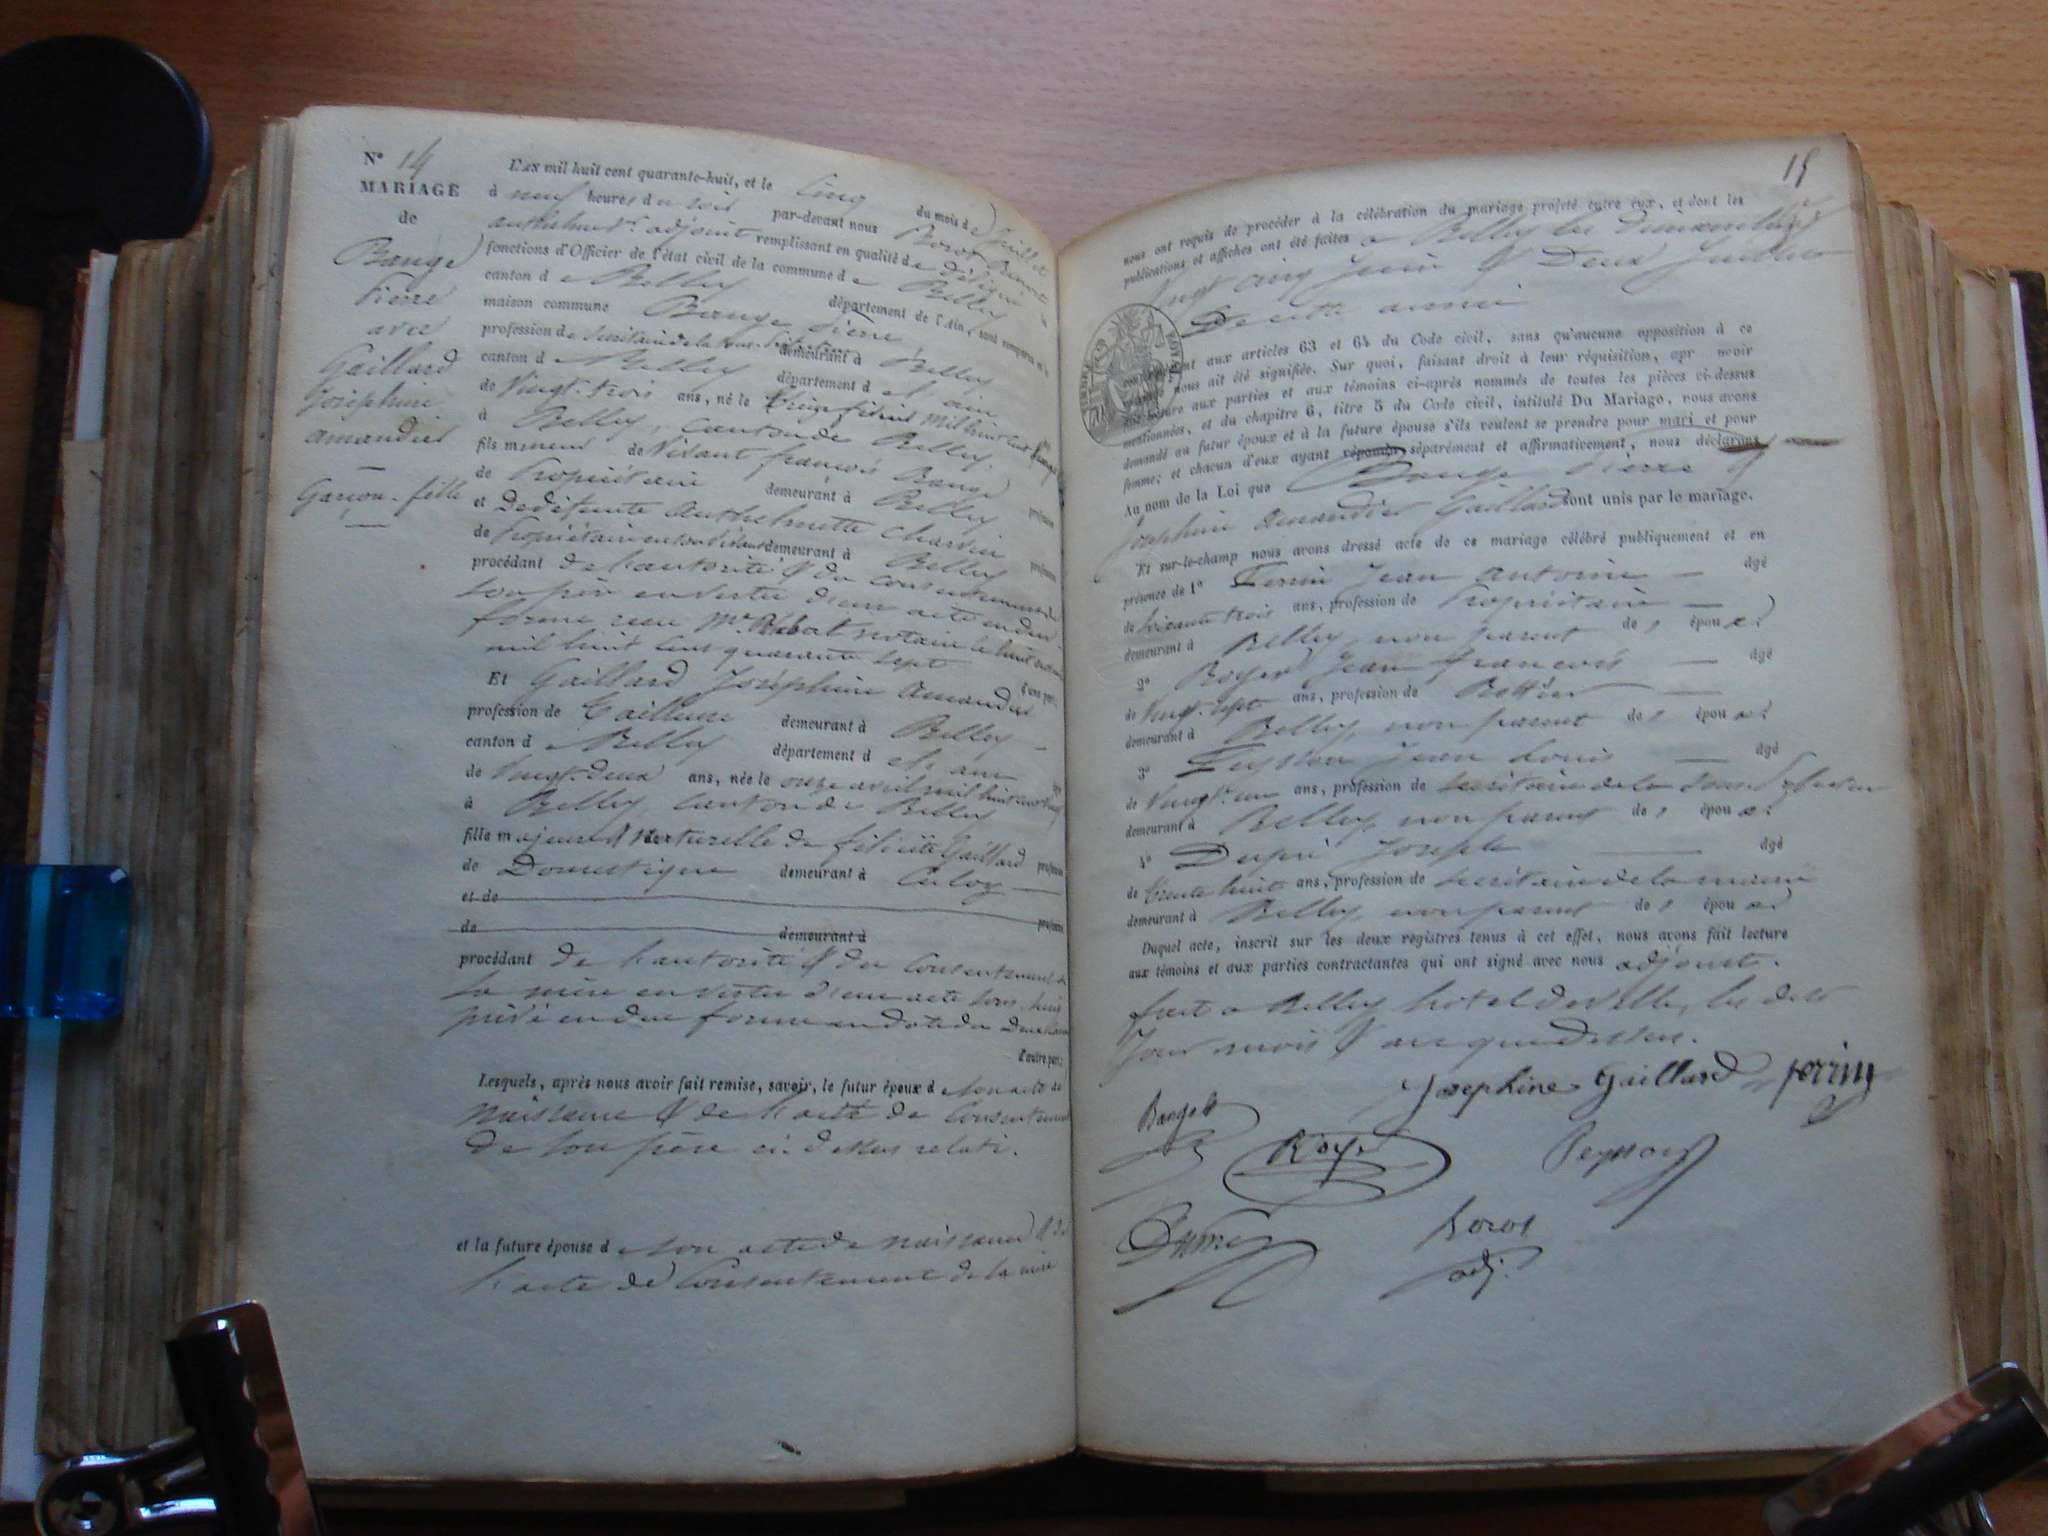 N° 14
MARIAGE
de
Bauge
Pierre
avec
Gaillard
Joséphine
amandine
Garçon - fille
L'AN mil huit cent quarante-huit, et le cinq du mois de Juillet
à neuf heures du soir par-devant nous Borot
adjoint remplissant en qualité de délégué
fonctions d'Officier de l'état civil de la commune de Belley
canton de Belley département de l'Ain, sont comparus en la
maison commune Bauge Pierre
profession de secrétaire de la demeurant à Belley
canton de Belley département de l'ain
de Vingt-trois ans, né le mil huit cent
à Belley, canton de Belley.
fils mineur de françois Bauge
de Propriétaire demeurant à Belley
et de défunte Anthelmette Charvin
de Propriétaire demeurant à Belley
procédant de l'autorité & du consentement de
son père en vertu d'un acte en due
forme reçu Me notaire le huit
mil huit cent quarante sept
d'une part,
Et Gaillard Joséphine amandine
profession de Tailleuse demeurant à Belley
canton de Belley département de l'ain
de Vingt-deux ans, née le onze avril mil huit cent
à Belley canton de Belley
fille majeure & naturelle de félicité Gaillard profession
de Domestique demeurant à Culoz
et de
de demeurant à profession
procédant de l'autorité & du consentement de
sa mère en vertu d'un acte sous seing
privé en due forme en date du
d'autre part;
Lesquels, après nous avoir fait remise, savoir, le futur époux de son acte de
naissance & de l'acte de consentement
de son père ci-dessus relaté.
et la future épouse de son acte de naissance & de
l'acte de consentement de sa mère
15
nous ont requis de procéder à la célébration du mariage projeté entre eux, et dont les
publications et affiches ont été faites à Belley les Dimanches
Vingt cinq Juin & Deux Juillet
De cette année
conformément aux articles 63 et 64 du Code civil, sans qu'aucune opposition à ce
mariage nous ait été signifiée. Sur quoi, faisant droit à leur réquisition, apr avoir
lecture aux parties et aux témoins ci-après nommés de toutes les pièces ci-dessus
mentionnées, et du chapitre 6, titre 5 du Code civil, intitulé Du Mariage, nous avons
demandé au futur époux et à la future épouse s'ils veulent se prendre pour mari et pour
femme; et chacun d'eux ayant répondu séparément et affirmativement, nous déclarons
Au nom de la Loi que Bauge Pierre &
Joséphine Amandine Gaillard sont unis par le mariage.
Et sur-le-champ nous avons dressé acte de ce mariage célébré publiquement et en
présence de 1° Perrin Jean Antoine âgé
de soixante trois ans, profession de Propriétaire
demeurant à Belley, non parent des époux.
2° Royer Jean françois âgé
de Vingt-sept ans, profession de Bottier
demeurant à Belley, non parent des époux.
3° Peysson Jean Louis âgé
de Vingt-un ans, profession de secrétaire de la
demeurant à Belley, non parent des époux.
4° Dupré Joseph âgé
de trente huit ans, profession de secrétaire de la mairie
demeurant à Belley, non parent des époux.
Duquel acte, inscrit sur les deux registres tenus à cet effet, nous avons fait lecture
aux témoins et aux parties contractantes qui ont signé avec nous adjoint.
fait à Belley hôtel de Ville, les dits
Jour mois & an que dessus.
Josephine Gaillard Perrin
Bauge
Royer Peysson
Dupré Borot
adj.